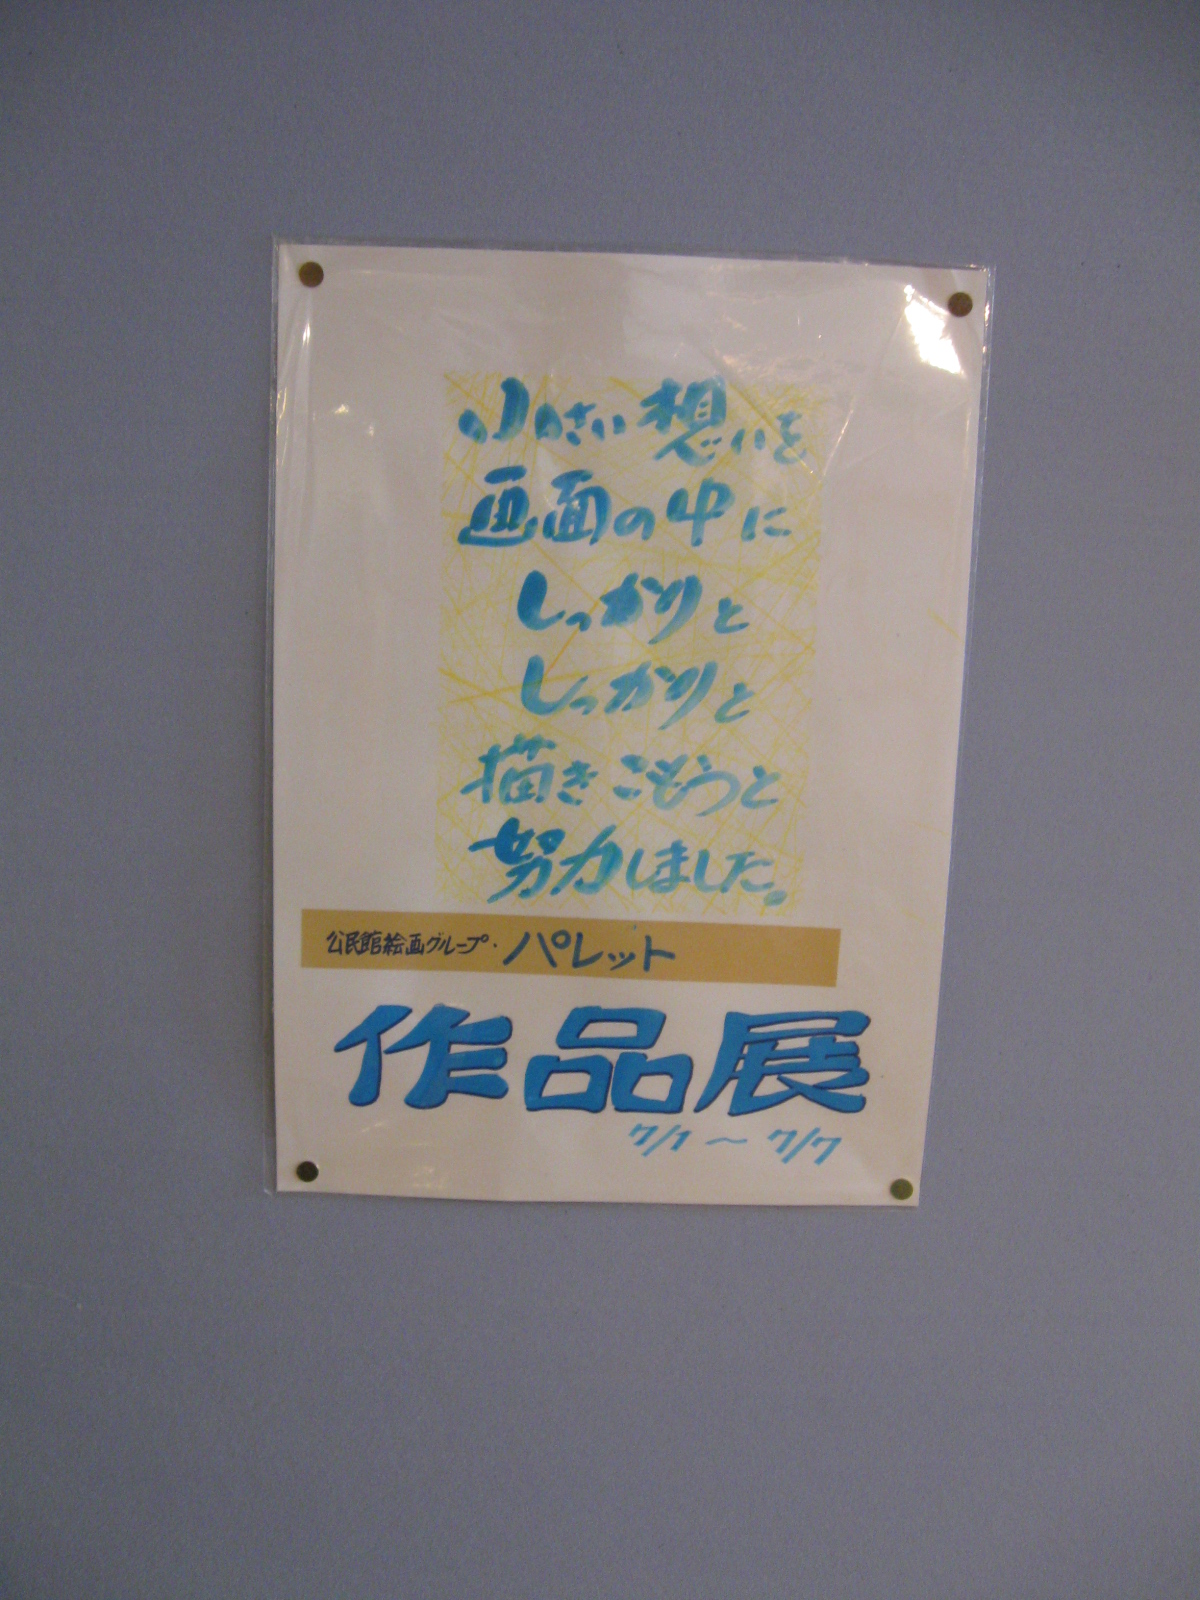 小さい想いを
画面の中に
しっかりと
しっかりと
描きこもうと
努力しました。
公民館絵画グループ・パレット
作品展
7/1〜7/7